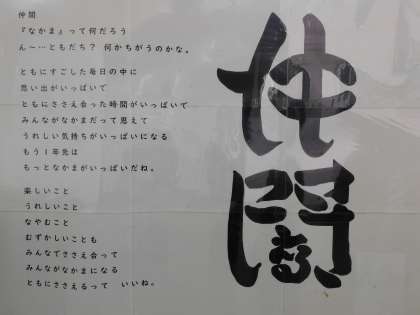 仲間
『なかま』って何だろう
ん〜…ともだち？ 何がちがうのかな。
ともにすごした毎日の中に
思い出がいっぱいで
ともにささえ合った時間がいっぱいで
みんながなかまだって思えて
うれしい気持ちがいっぱいになる
もう１年先は
もっとなかまがいっぱいだね。
楽しいこと
うれしいこと
なやむこと
むずかしいことも
みんなでささえ合って
みんながなかまになる
ともにささえるって いいね。
仲間